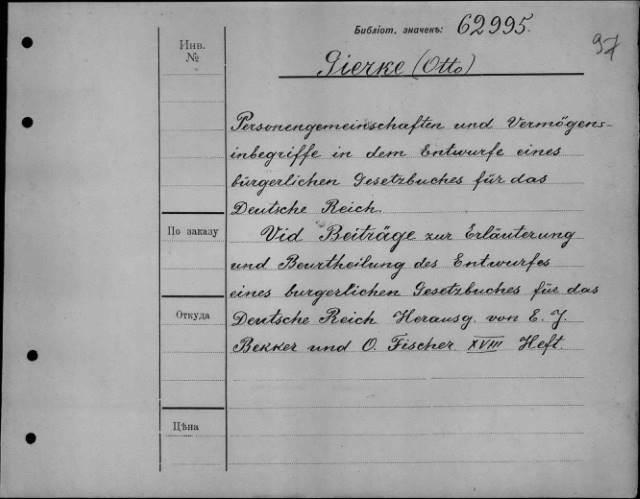 Библіот. значекъ: 62995.
97
Инв.
№
Gierke (Otto)
Personengemeinschaften und Vermögens-
inbegriffe in dem Entwurfe eines
bürgerlichen Gesetzbuches für das
Deutsche Reich.
По заказу
Vid Beiträge zur Erläuterung
und Beurtheilung des Entwurfes
eines burgerlichen Gesetzbuches für das
Откуда
Deutsche Reich Herausg. von E. J.
Bekker und O. Fischer. XVIII Heft.
Цѣна